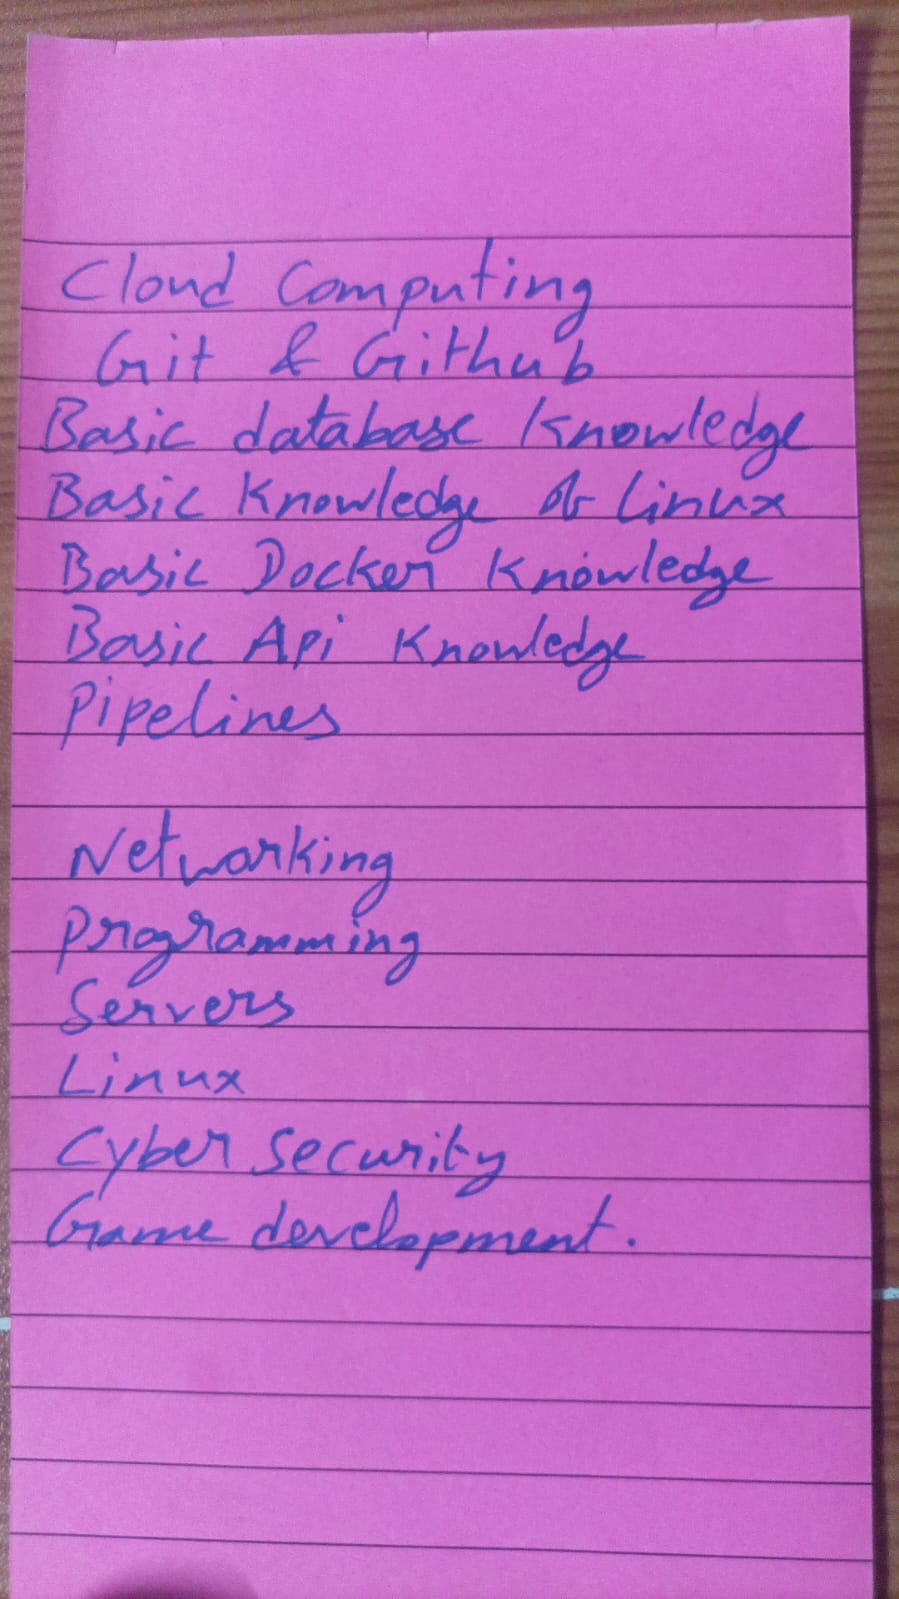 Cloud Computing
Git & Github
Basic database Knowledge
Basic Knowledge of Linux
Basic Docker Knowledge
Basic Api Knowledge
Pipelines
Networking
Programming
Servers
Linux
Cyber Security
Game development.